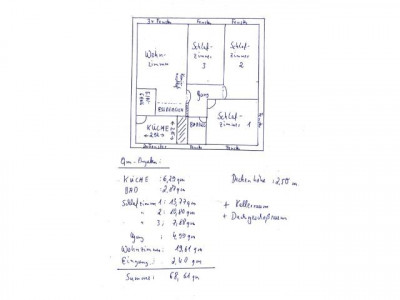 3x Fenster
Fenster
Fenster
Wohn-
zimmer
Schlaf-
zimmer
3
Schlaf-
zimmer
2
Gang
Schlaf-
zimmer 1
Fenster
EINGANG
KÜCHE
BAD
Fenster
Fenster
Qm-Angaben:
KÜCHE : 6,29 qm
BAD : 2,80 qm
Schlafzimmer 1 : 13,77 qm
" 2 : 10,80 qm
" 3 : 7,88 qm
Gang : 4,99 qm
Wohnzimmer : 19,61 qm
Eingang : 2,40 qm
Summe : 68,61 qm
Deckenhöhe : 2,50 m
+ Kellerraum
+ Dachgeschoßraum